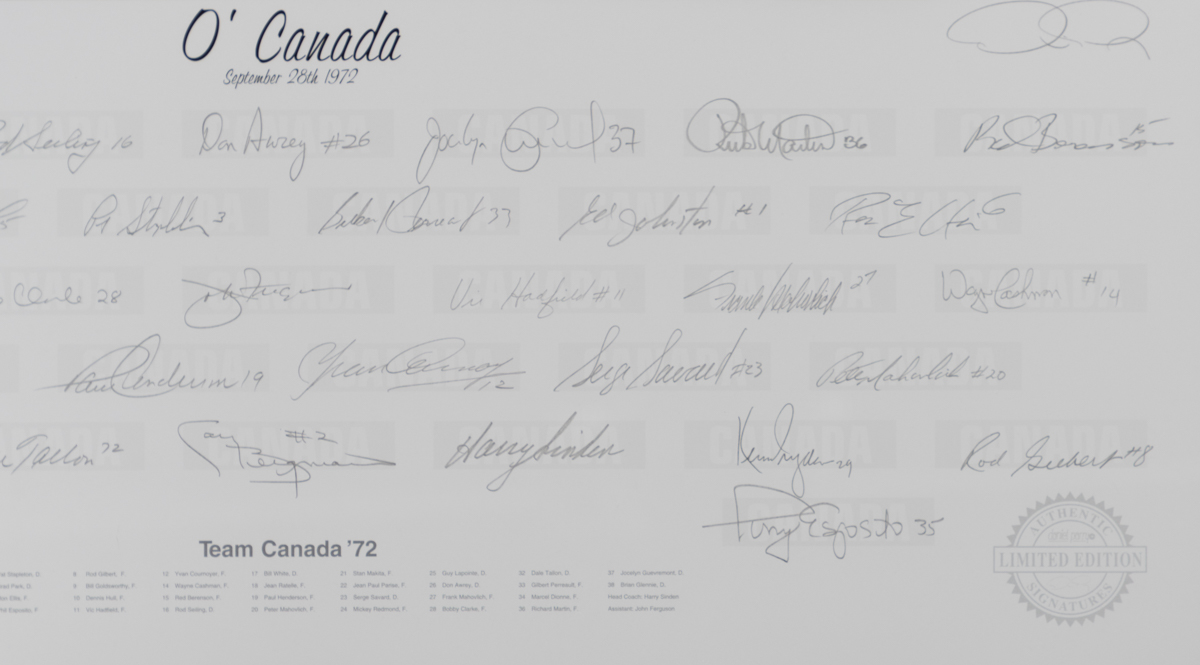 O' Canada
September 28th 1972
16 Don Awrey #26 Joclyn 37 Rick Martin 36 Red Berenson 15
Pat Stapleton 3 Gilbert Perreault 33 Ed Johnston #1 Ron Ellis 6
Clarke 28 John Ferguson Vic Hadfield #11 Frank Mahovlich 27 Wayne Cashman #14
Paul Henderson 19 Yvan Cournoyer 12 Serge Savard #23 Peter Mahovlich #20
Tallon 32 Gary Bergman #2 Harry Sinden Ken Dryden 29 Rod Gilbert #8
Tony Esposito 35
AUTHENTIC
LIMITED EDITION
SIGNATURES
Team Canada '72
Stapleton, D. 8 Rod Gilbert, F. 12 Yvan Cournoyer, F. 17 Bill White, D. 21 Stan Mikita, F. 25 Guy Lapointe, D. 32 Dale Tallon, D. 37 Jocelyn Guevremont, D.
Park, D. 9 Bill Goldsworthy, F. 14 Wayne Cashman, F. 18 Jean Ratelle, F. 22 Jean Paul Parise, F. 26 Don Awrey, D. 33 Gilbert Perreault, F. 38 Brian Glennie, D.
Ellis, F. 10 Dennis Hull, F. 15 Red Berenson, F. 19 Paul Henderson, F. 23 Serge Savard, D. 27 Frank Mahovlich, F. 34 Marcel Dionne, F. Head Coach: Harry Sinden
Phil Esposito, F. 11 Vic Hadfield, F. 16 Rod Seiling, D. 20 Peter Mahovlich, F. 24 Mickey Redmond, F. 28 Bobby Clarke, F. 36 Richard Martin, F. Assistant: John Ferguson